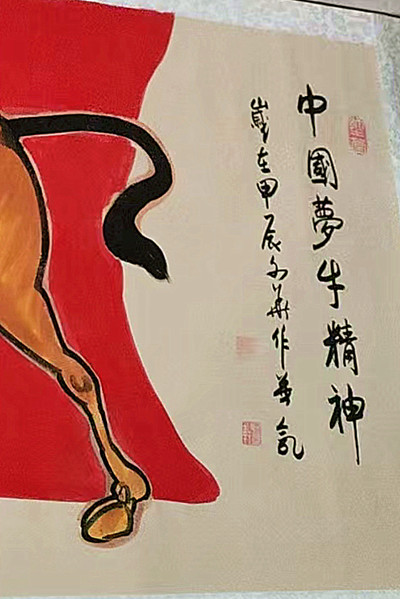 中國夢牛精神
歲在甲辰文華作并氣